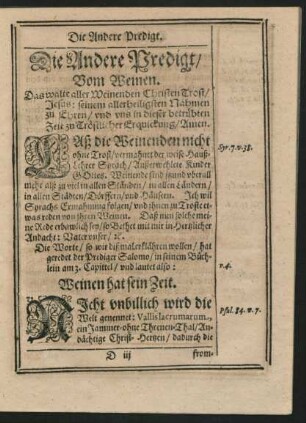 Die Andere Predigt.
Die Andere Predigt/
Vom Weinen.
Das walte aller Weinenden Christen Trost/
Jesus: seinem allerheiligsten Nahmen
zu Ehren/ vnd vns in dieser betrübten
Zeit zu Tröstlicher Erquickung/ Amen.
Laß die Weinenden nicht
ohne Trost/ vermahnet der weise Hauß-
Lehrer Syrach/ Außerwehlete Kinder
Gottes. Weinende sind jtzund vberall
mehr als zu viel in allen Ständen/ in allen Ländern/
in allen Städten/ Dörffern/ vnd Häusern. Ich wil
Syrachs Ermahnung folgen/ vnd jhnen zu Trost et-
was reden von jhren Weinen. Daß nun solche mei-
ne Rede erbawlich sey/ so Bethet mit mir in Hertzlicher
Andacht: Vater vnser/ ꝛc.
Die Worte/ so wir dißmal erklären wollen/ hat
geredet der Prediger Salomo/ in seinem Büch-
lein am 3. Capittel/ vnd lautet also:
Weinen hat sein Zeit.
Nicht vnbillich wird die
Welt genennet: Vallis lacrumarum,
ein Jammer-ohne Threnen-Thal/ An-
dächtige Christ-Hertzen/ dadurch die
D iij
from-
Syr. 7. v. 38.
v. 4.
Psal. 84. v. 7.